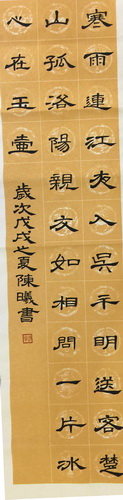 寒雨連江夜入吳平明送客楚
山孤洛陽親友如相問一片冰
心在玉壺
歲次戊戌之夏陳曦書